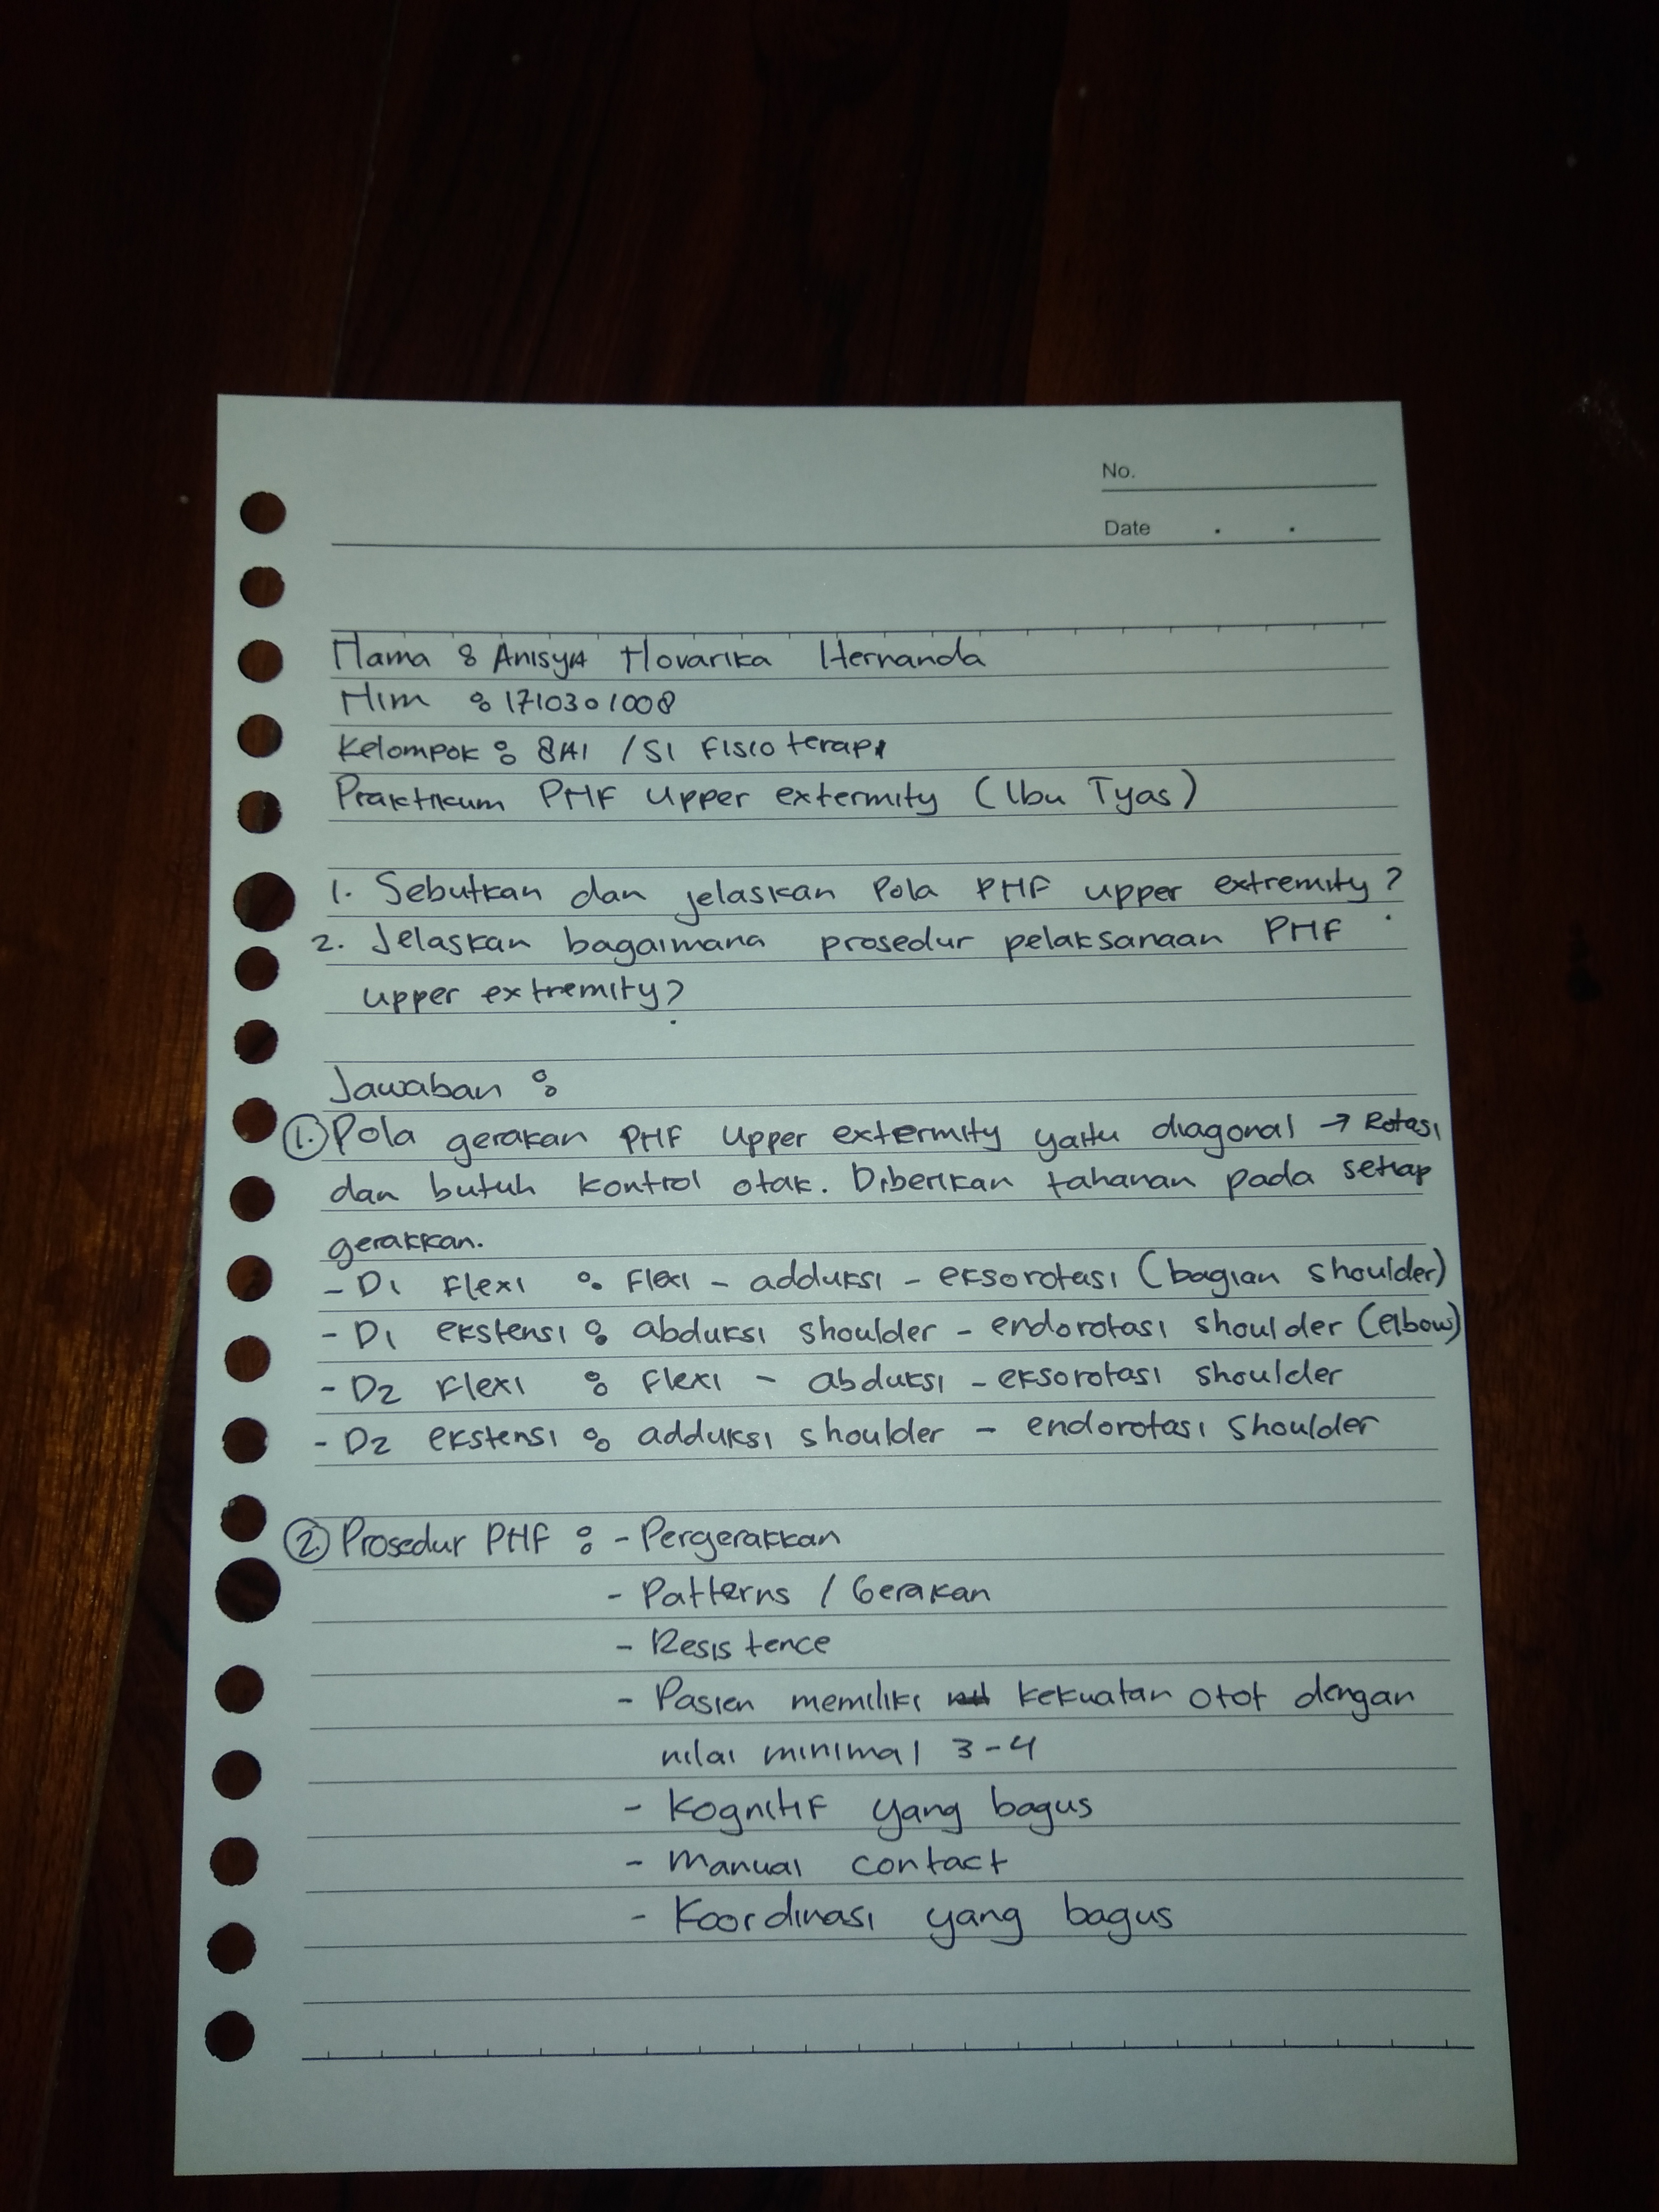 No.
Date . .
Nama : Anisya Novarika Hernanda
Nim : 1710301008
Kelompok : 8A1 / S1 Fisioterapi
Praktikum PNF Upper extermity (Ibu Tyas)
1. Sebutkan dan jelaskan Pola PNF upper extremity?
2. Jelaskan bagaimana prosedur pelaksanaan PNF
upper extremity?
Jawaban :
1. Pola gerakan PNF Upper extermity yaitu diagonal → Rotasi
dan butuh kontrol otak. Diberikan tahanan pada setiap
gerakkan.
- D1 Flexi : Flexi - adduksi - eksorotasi (bagian shoulder)
- D1 ekstensi : abduksi shoulder - endorotasi shoulder (elbow)
- D2 Flexi : flexi - abduksi - eksorotasi shoulder
- D2 ekstensi : adduksi shoulder - endorotasi shoulder
2. Prosedur PNF : - Pergerakkan
- Patterns / Gerakan
- Resistence
- Pasien memiliki kekuatan otot dengan
nilai minimal 3-4
- Kognitif yang bagus
- Manual contact
- Koordinasi yang bagus